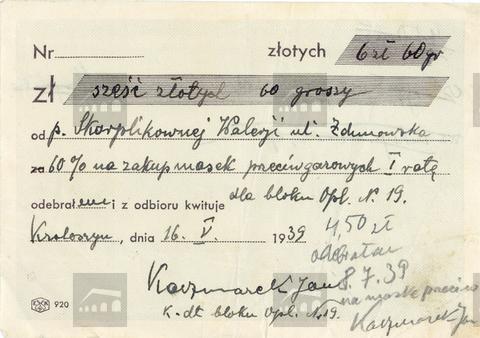 Nr. złotych 6 zł 60 gr
zł sześć złotych 60 groszy
od p. Skorplikownej Walerji ul. Zdunowska
za 60% na zakup masek przeciwgazowych I ratę
dla bloku Opl. N. 19.
odebrałem i z odbioru kwituję
Krotoszyn, dnia 16. V. 1939
4,50 zł
odebrałem
8.7.39
na maskę przeciw
Kaczmarek Jan
Kaczmarek Jan
k-dt bloku Opl. N. 19.
920